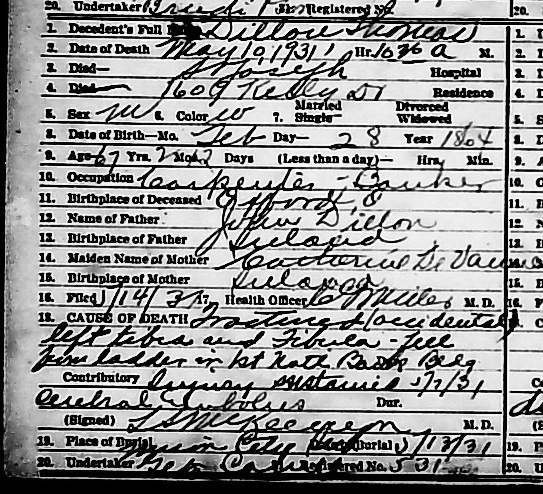 20. Undertaker Registered No.
1. Decedent's Full Dillon Thomas
2. Date of Death May 10, 1931 Hr. 10 30 a M.
3. Died— St Joseph Hospital
4. Died— 1609 Kelly Dr Residence
5. Sex M 6. Color W 7. Married Single Divorced Widowed
8. Date of Birth—Mo. Feb Day— 28 Year 1864
9. Age 67 Yrs. 2 Mos. 12 Days (Less than a day)— Hrs. Min.
10. Occupation Carpenter -
11. Birthplace of Deceased O
12. Name of Father John Dillon
13. Birthplace of Father Ireland
14. Maiden Name of Mother Catherine De
15. Birthplace of Mother Ireland
16. Filed 5/14/31 17. Health Officer Miller M. D.
18. CAUSE OF DEATH Fractured (accidental)
left tibia and Fibula - fell
from ladder in 1st Natl Bank Bldg
Contributory Injury sustained 5/7/31
Cerebral embolus Dur.
(Signed) M. D.
19. Place of Burial City Burial 5/13/31
20. Undertaker Registered No. 531